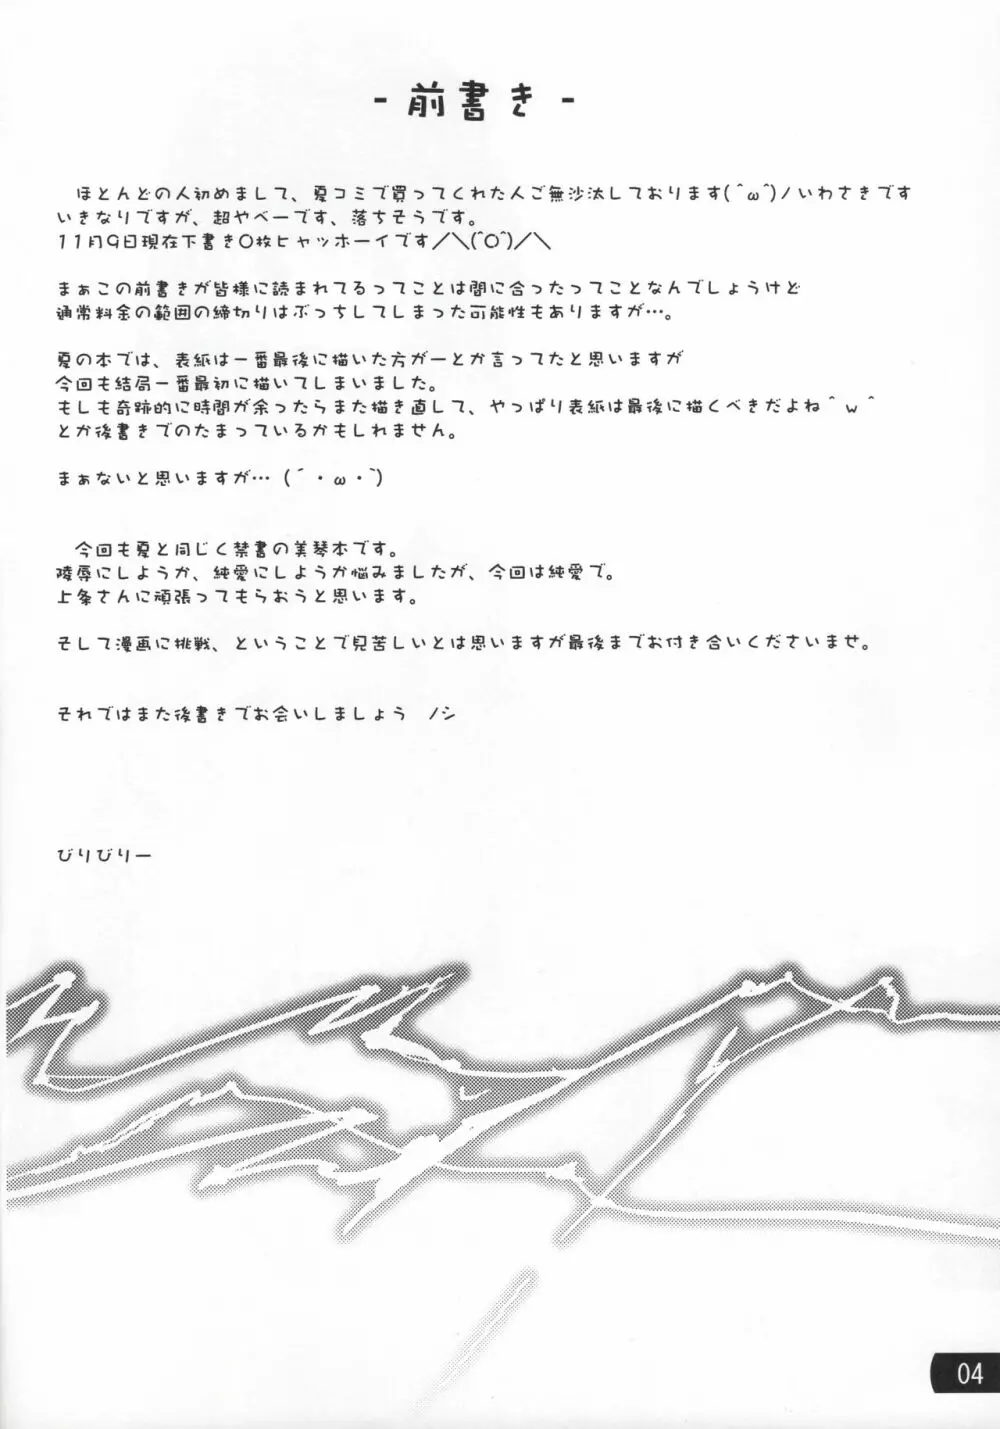 - 前書き -
ほとんどの人初めまして、夏コミで買ってくれた人ご無沙汰しております(^ω^)ノいわさきです
いきなりですが、超やべーです、落ちそうです。
11月9日現在下書き〇枚ヒャッホーイです／＼(^O^)／＼
まぁこの前書きが皆様に読まれてるってことは間に合ったってことなんでしょうけど
通常料金の範囲の締切りはぶっちしてしまった可能性もありますが…。
夏の本では、表紙は一番最後に描いた方がーとか言ってたと思いますが
今回も結局一番最初に描いてしまいました。
もしも奇跡的に時間が余ったらまた描き直して、やっぱり表紙は最後に描くべきだよね＾ｗ＾
とか後書きでのたまっているかもしれません。
まぁないと思いますが…（´・ω・｀）
今回も夏と同じく禁書の美琴本です。
陵辱にしようか、純愛にしようか悩みましたが、今回は純愛で。
上条さんに頑張ってもらおうと思います。
そして漫画に挑戦、ということで見苦しいとは思いますが最後までお付き合いくださいませ。
それではまた後書きでお会いしましょう　ノシ
びりびりー
04